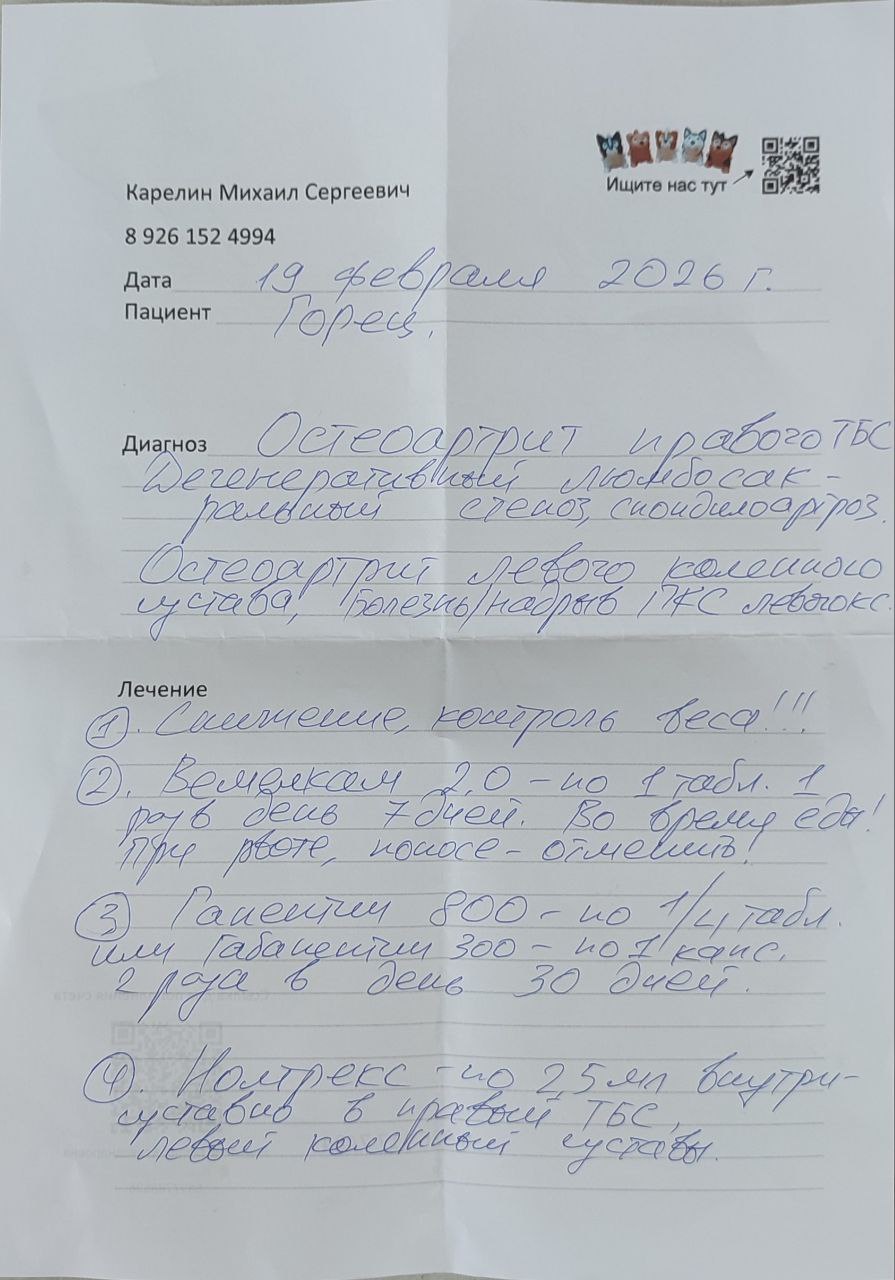 Ищите нас тут
Карелин Михаил Сергеевич
8 926 152 4994
Дата 19 февраля 2026 г.
Пациент Горец.
Диагноз Остеоартрит правого ТБС
Дегенеративный люмбосак-
ральный стеноз, спондилоартроз.
Остеоартрит левого коленного
сустава, Болезнь/надрыв ПКС левого кс
Лечение
①. Снижение, контроль веса!!!
②. Вемелкам 2,0 - по 1 табл. 1
раз в день 7 дней. Во время еды!
При рвоте, поносе - отменить!
③ Гапентин 800 - по 1/4 табл.
или Габапентин 300 - по 1 капс.
2 раза в день 30 дней.
④. Нолтрекс - по 2,5 мл внутри-
суставно в правый ТБС,
левый коленный суставы.